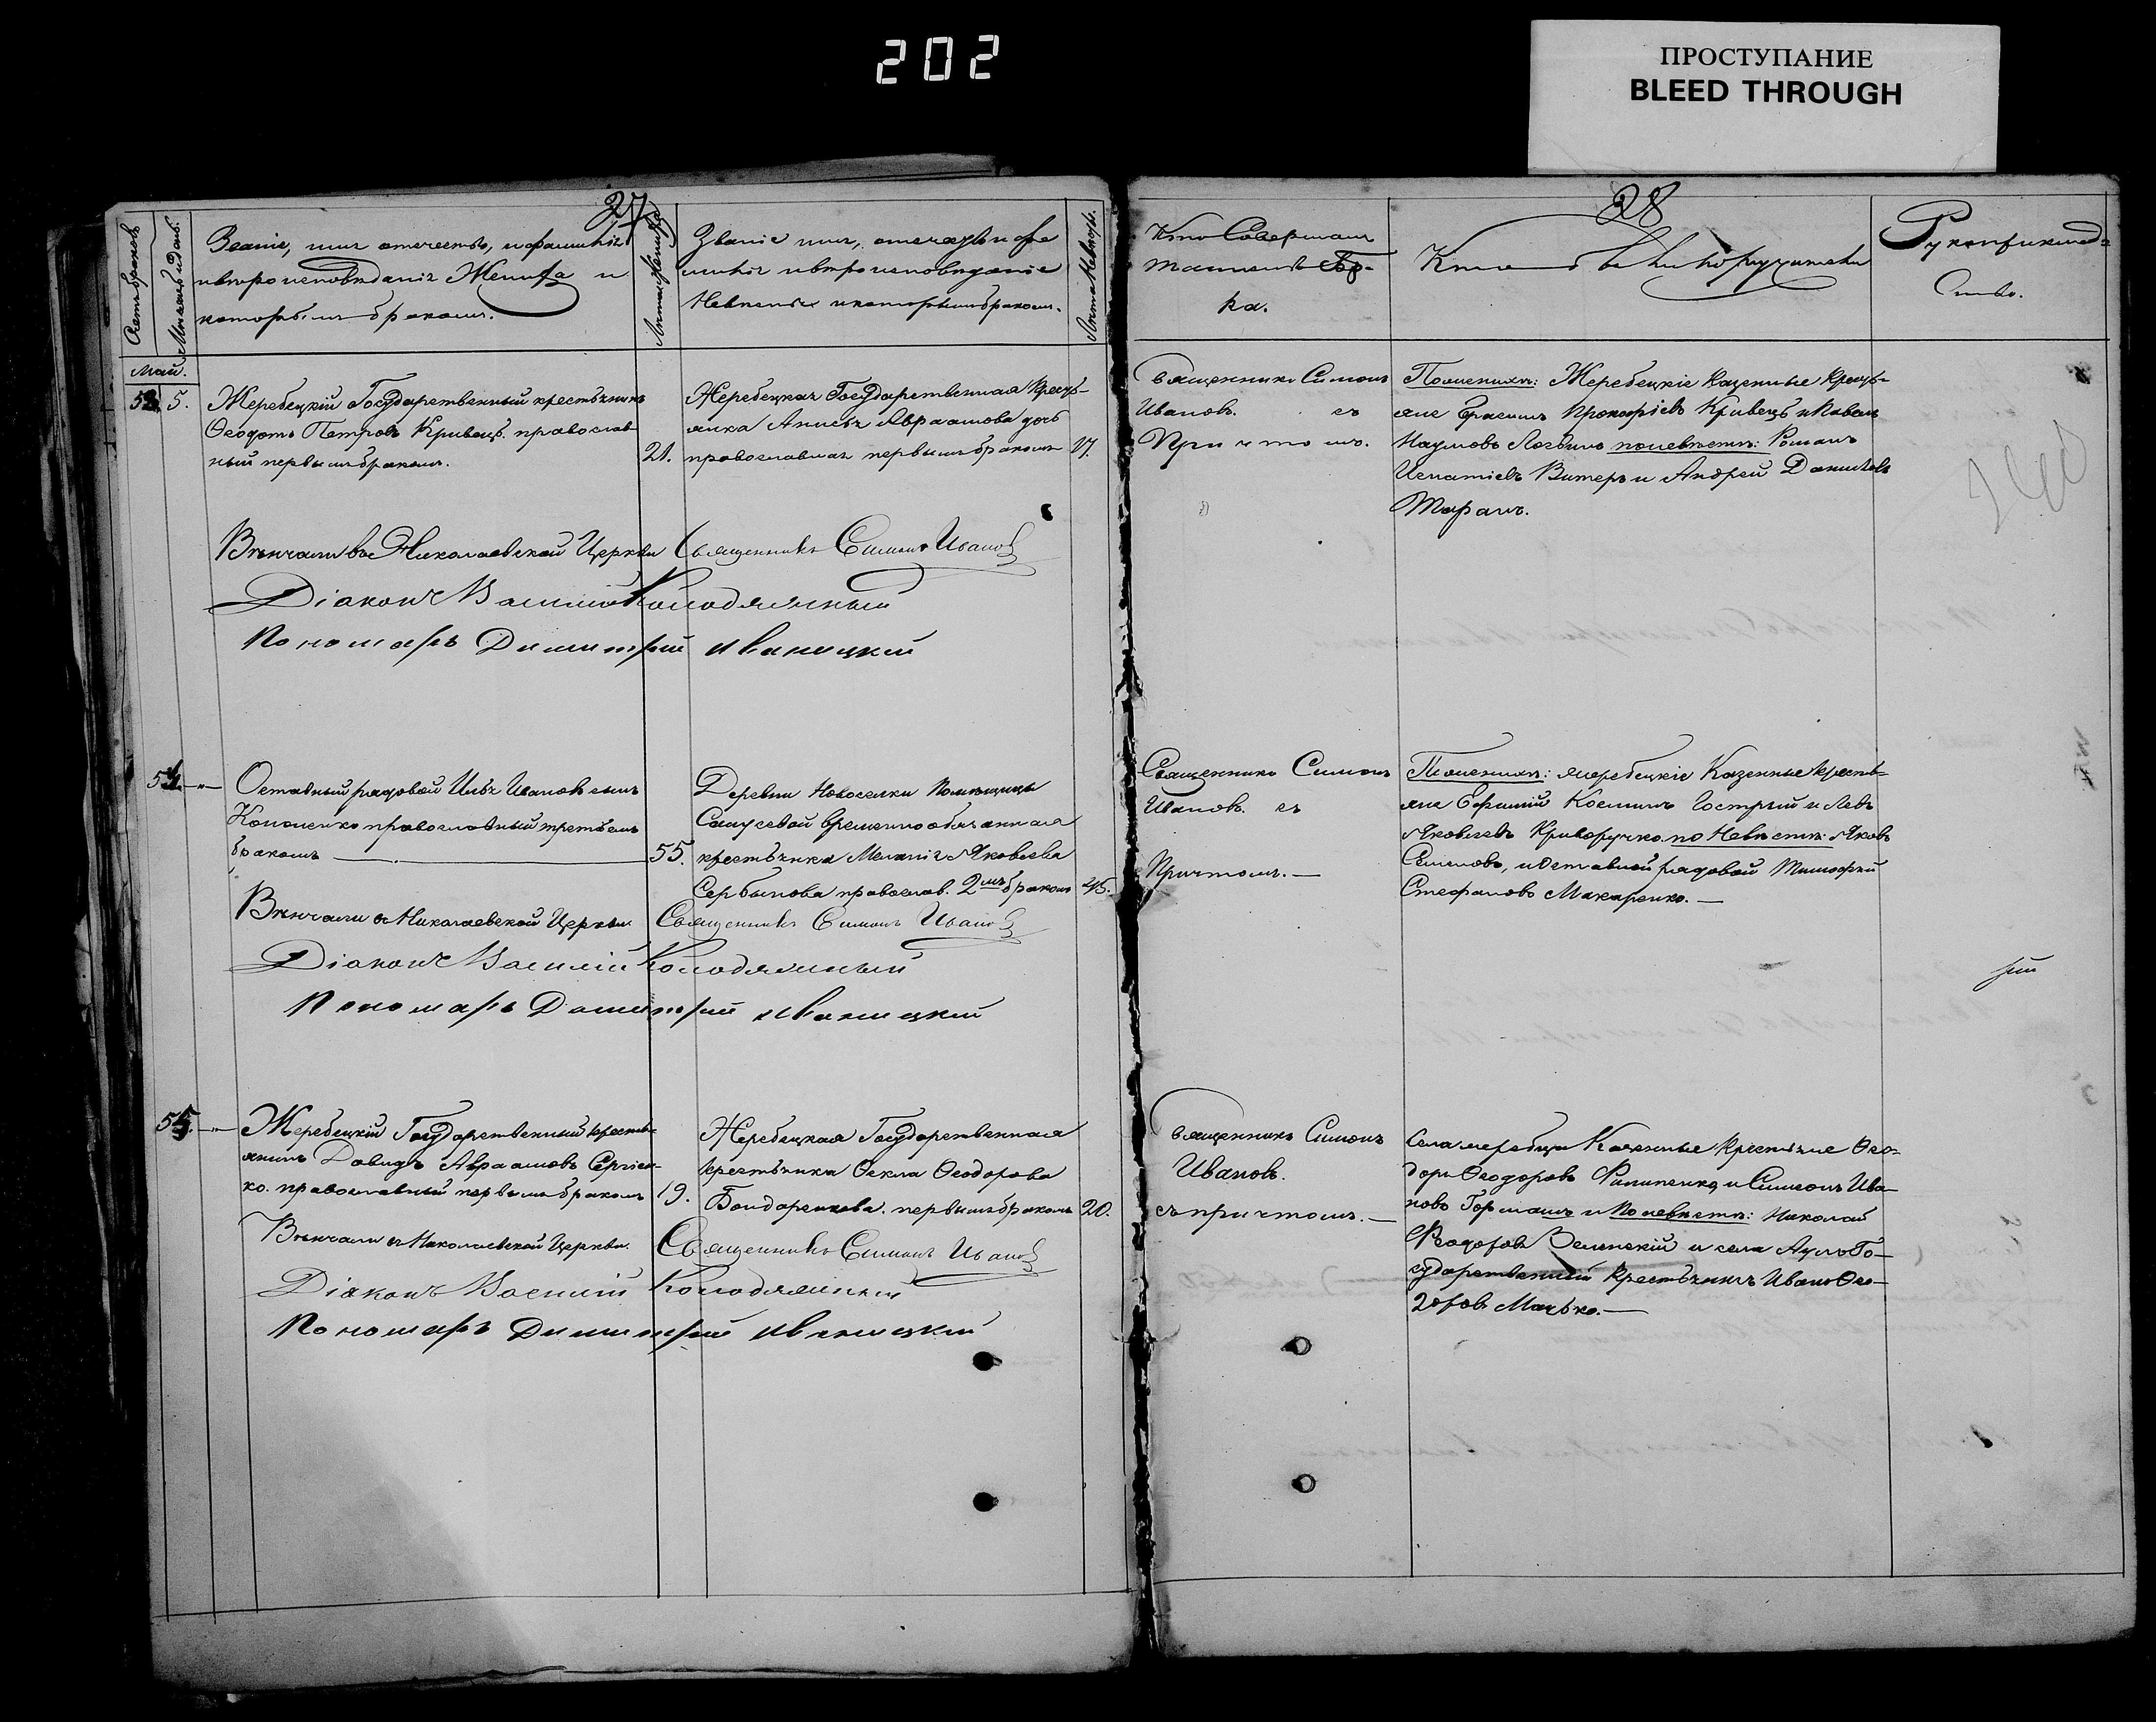 202
ПРОСТУПАНИЕ
BLEED THROUGH
27
28
Счетъ браковъ
Мѣсяцъ и день.
Званіе, имя отечество, и фамилія
и вѣроисповѣданіе Жениха и
которымъ бракомъ.
Лѣта Жениха
Званіе имя, отечество и фа
милія и вѣроисповѣданіе
Невѣсты и которымъ бракомъ.
Лѣта Невѣсты.
Кто Совершалъ
таинство Бра-
ка.
Кто были поручители
Рукоприклад=
ство.
Май.
53. 5.
Жеребецкій Государственный крестьянинъ
Ѳеодотъ Петровъ Кривецъ. православ-
ный первымъ бракомъ.
21.
Жеребецкая Государственная кресть-
янка Анисья Авраамова дочь
православная первымъ бракомъ
17.
Священникъ Симонъ
Ивановъ. съ
Причтомъ.
По женихѣ: Жеребецкіе казенные кресть-
яне Герасимъ Прокофіевъ Кривецъ и Павелъ
Наумовъ Логвинъ по невѣстѣ: Романъ
Игнатіевъ Витеръ и Андрей Даниловъ
Таранъ.
Вѣнчали въ Николаевской Церкви Священникъ Симонъ Ивановъ
Діаконъ Василій Колодяжный
Пономарь Димитрій Иваницкій
54. —"—
Отставный рядовой Илья Ивановъ сынъ
Кононенко православный третьимъ
бракомъ —
55.
Деревни Новоселки Помѣщицы
временно обязанная
крестьянка Меланія Яковлева
Сербинова православ. 2мъ бракомъ
45.
Священникъ Симонъ
Ивановъ. съ
Причтомъ. —
По женихѣ: жеребецкіе Казенные кресть-
яне Ефимій Косминъ Гострый и Левъ
Яковлевъ Криворучко. по Невѣстѣ: Яковъ
Семеновъ, и отставной рядовой Тимофей
Стефановъ Макаренко. —
Вѣнчали въ Николаевской Церкви. Священникъ Симонъ Ивановъ
Діаконъ Василій Колодяжный
Пономарь Димитрій Иваницкій
55. —"—
Жеребецкій Государственный кресть-
янинъ Давидъ Авраамовъ Сергіен-
ко. православный первымъ бракомъ
19.
Жеребецкая Государственная
крестьянка Ѳекла Ѳеодорова
Бондаренкова. первымъ бракомъ
20.
Священникъ Симонъ
Ивановъ.
съ причтомъ. —
Села жеребца Казенные крестьяне Ѳео-
доръ Ѳеодоровъ Филипенко, и Симеонъ Ива
новъ Горманъ и По невѣстѣ: Николай
Ѳеодоровъ Зеленскій и села Го-
сударственный крестьянинъ Иванъ Ѳео-
доровъ Мачько. —
Вѣнчали въ Николаевской Церкви. Священникъ Симонъ Ивановъ
Діаконъ Василій Колодяжный
Пономарь Димитрій Иваницкій